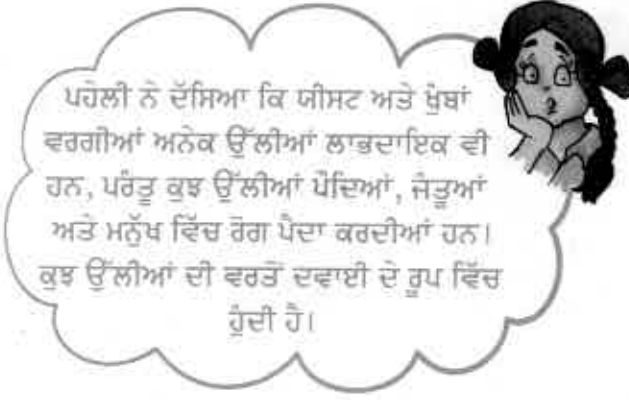 ਪਹੇਲੀ ਨੇ ਦੱਸਿਆ ਕਿ ਯੀਸਟ ਅਤੇ ਖੁੰਬਾਂ
ਵਰਗੀਆਂ ਅਨੇਕ ਉੱਲੀਆਂ ਲਾਭਦਾਇਕ ਵੀ
ਹਨ, ਪਰੰਤੂ ਕੁਝ ਉੱਲੀਆਂ ਪੌਦਿਆਂ, ਜੰਤੂਆਂ
ਅਤੇ ਮਨੁੱਖ ਵਿੱਚ ਰੋਗ ਪੈਦਾ ਕਰਦੀਆਂ ਹਨ।
ਕੁਝ ਉੱਲੀਆਂ ਦੀ ਵਰਤੋਂ ਦਵਾਈ ਦੇ ਰੂਪ ਵਿੱਚ
ਹੁੰਦੀ ਹੈ।